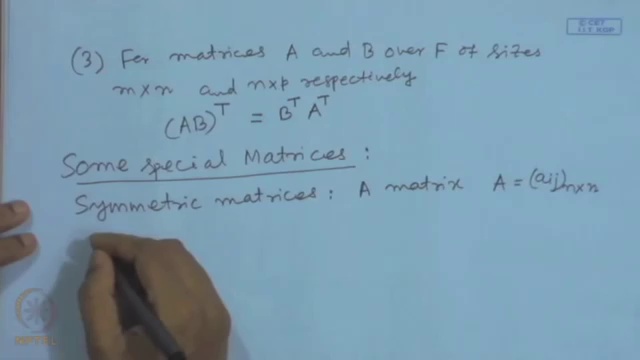 C-CET
I.I.T. KGP
(3) For matrices A and B over F of sizes
m×n and n×p respectively
(AB)^T = B^T A^T
Some special Matrices :
Symmetric matrices : A matrix A = (aij)n×n
NPTEL